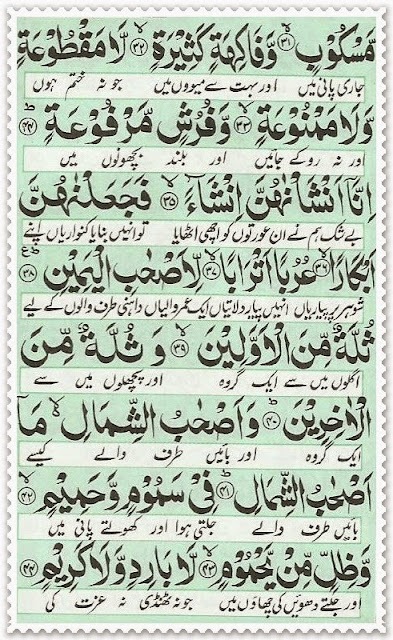 مَّسْكُوْبٍ ۙ﴿۳۱﴾ وَّفَاكِهَةٍ كَثِيْرَةٍ ۙ﴿۳۲﴾ لَّا مَقْطُوْعَةٍ
جاری پانی میں اور بہت سے میووں میں جو نہ ختم ہوں
وَّلَا مَمْنُوْعَةٍ ۙ﴿۳۳﴾ وَّفُرُشٍ مَّرْفُوْعَةٍ ؕ﴿۳۴﴾
اور نہ روکے جائیں اور بلند بچھونوں میں
اِنَّاۤ اَنْشَاْنٰهُنَّ اِنْشَآءً ۙ﴿۳۵﴾ فَجَعَلْنٰهُنَّ
بے شک ہم نے ان عورتوں کو اچھی اٹھان اٹھایا تو انہیں بنایا کنواریاں اپنے
اَبْكَارًا ۙ﴿۳۶﴾ عُرُبًا اَتْرَابًا ۙ﴿۳۷﴾ لِّاَصْحٰبِ الْيَمِيْنِ ؕ﴿۳۸﴾ ع
شوہر پر پیاریاں انہیں پیار دلاتیاں ایک عمر والیاں داہنی طرف والوں کے لیے
ثُلَّةٌ مِّنَ الْاَوَّلِيْنَ ۙ﴿۳۹﴾ وَ ثُلَّةٌ مِّنَ
اگلوں میں سے ایک گروہ اور پچھلوں میں سے
الْاٰخِرِيْنَ ؕ﴿۴۰﴾ وَ اَصْحٰبُ الشِّمَالِ ۙ۬ مَاۤ
ایک گروہ اور بائیں طرف والے کیسے
اَصْحٰبُ الشِّمَالِ ؕ﴿۴۱﴾ فِيْ سَمُوْمٍ وَّ حَمِيْمٍ ۙ﴿۴۲﴾
بائیں طرف والے جلتی ہوا اور کھولتے پانی میں
وَّ ظِلٍّ مِّنْ يَّحْمُوْمٍ ۙ﴿۴۳﴾ لَّا بَارِدٍ وَّلَا كَرِيْمٍ ﴿۴۴﴾
اور جلتے دھوئیں کی چھاؤں میں جو نہ ٹھنڈی نہ عزت کی